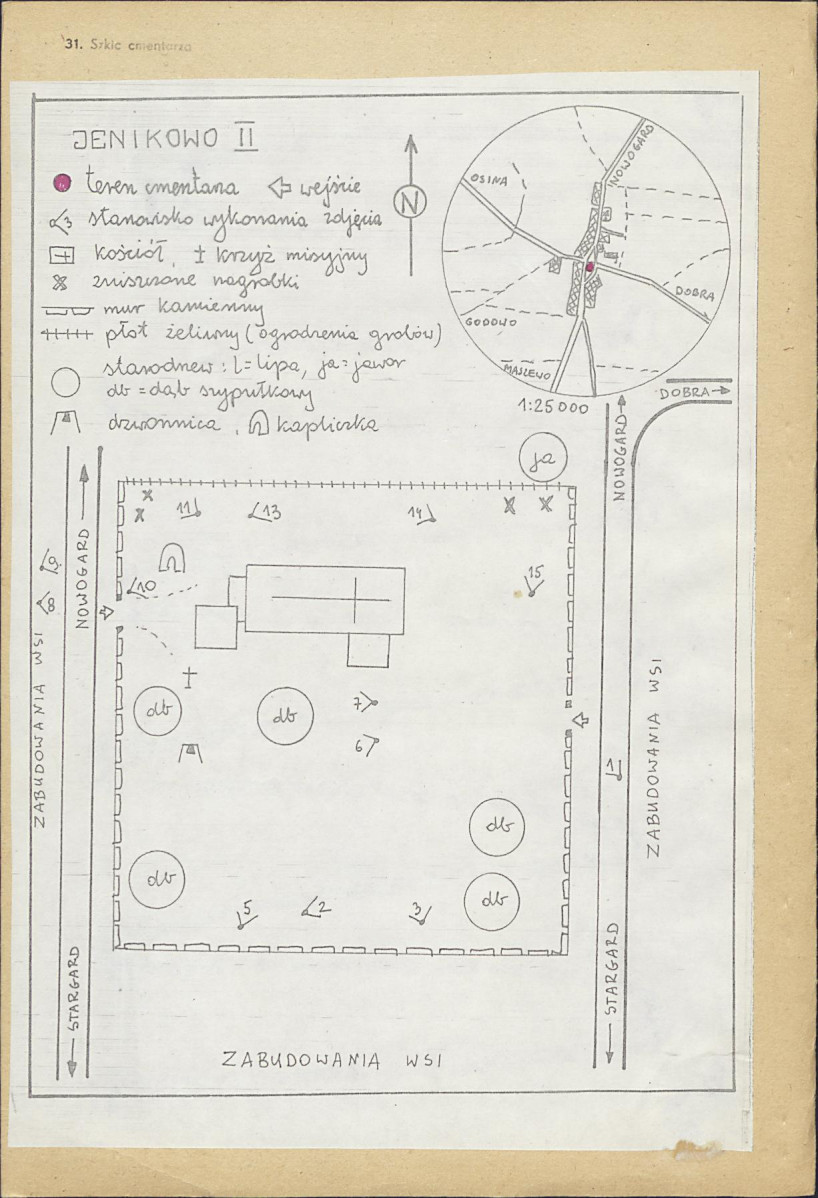 31. Szkic cmentarza
JENIKOWO II
teren cmentarza wejście
3 stanowisko wykonania zdjęcia
kościół, krzyż misyjny
zniszczone nagrobki
mur kamienny
płot żeliwny (ogrodzenia grobów)
starodrzew: l=lipa, ja=jawor
db=dąb szypułkowy
dzwonnica, kapliczka
N
OSINA
NOWOGARD
DOBRA
GODOWO
MASZEWO
1:25000
DOBRA
NOWOGARD
ja
NOWOGARD
11
13
14
15
9
8
10
ZABUDOWANIA WSI
db
db
7
6
1
ZABUDOWANIA WSI
db
db
db
5
2
3
STARGARD
STARGARD
ZABUDOWANIA WSI